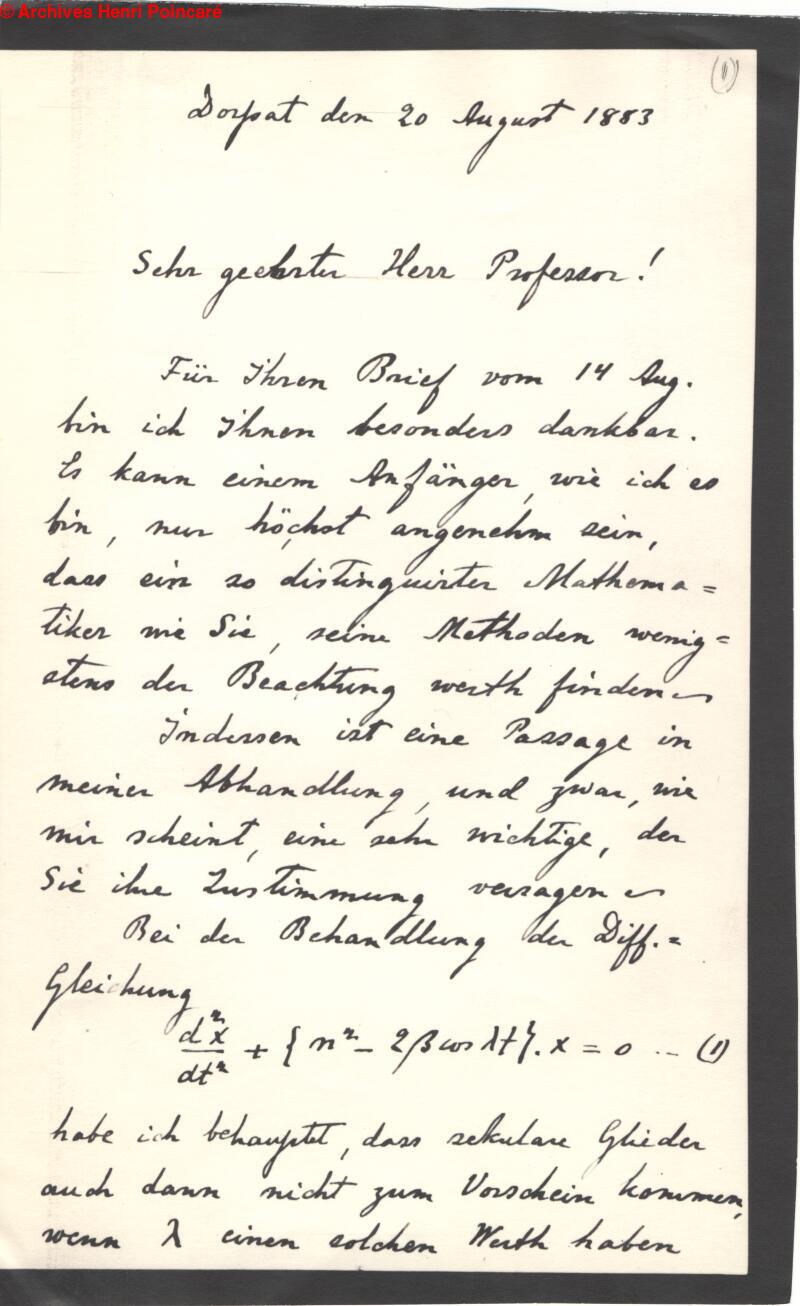 © Archives Henri Poincaré
(1)
Dorpat den 20 August 1883
Sehr geehrter Herr Professor!
Für Ihren Brief vom 14 Aug.
bin ich Ihnen besonders dankbar.
Es kann einem Anfänger, wie ich es
bin, nur höchst angenehm sein,
dass ein so distinguirter Mathema=
tiker wie Sie, seine Methoden wenig=
stens der Beachtung werth finden.
Indessen ist eine Passage in
meiner Abhandlung, und zwar, wie
mir scheint, eine sehr wichtige, der
Sie ihre Zustimmung versagen.
Bei der Behandlung der Diff.=
Gleichung
d²x/dt² + {n² - 2β cos λt}. x = 0 -- (1)
habe ich behauptet, dass sekulare Glieder
auch dann nicht zum Vorschein kommen,
wenn λ einen solchen Werth haben